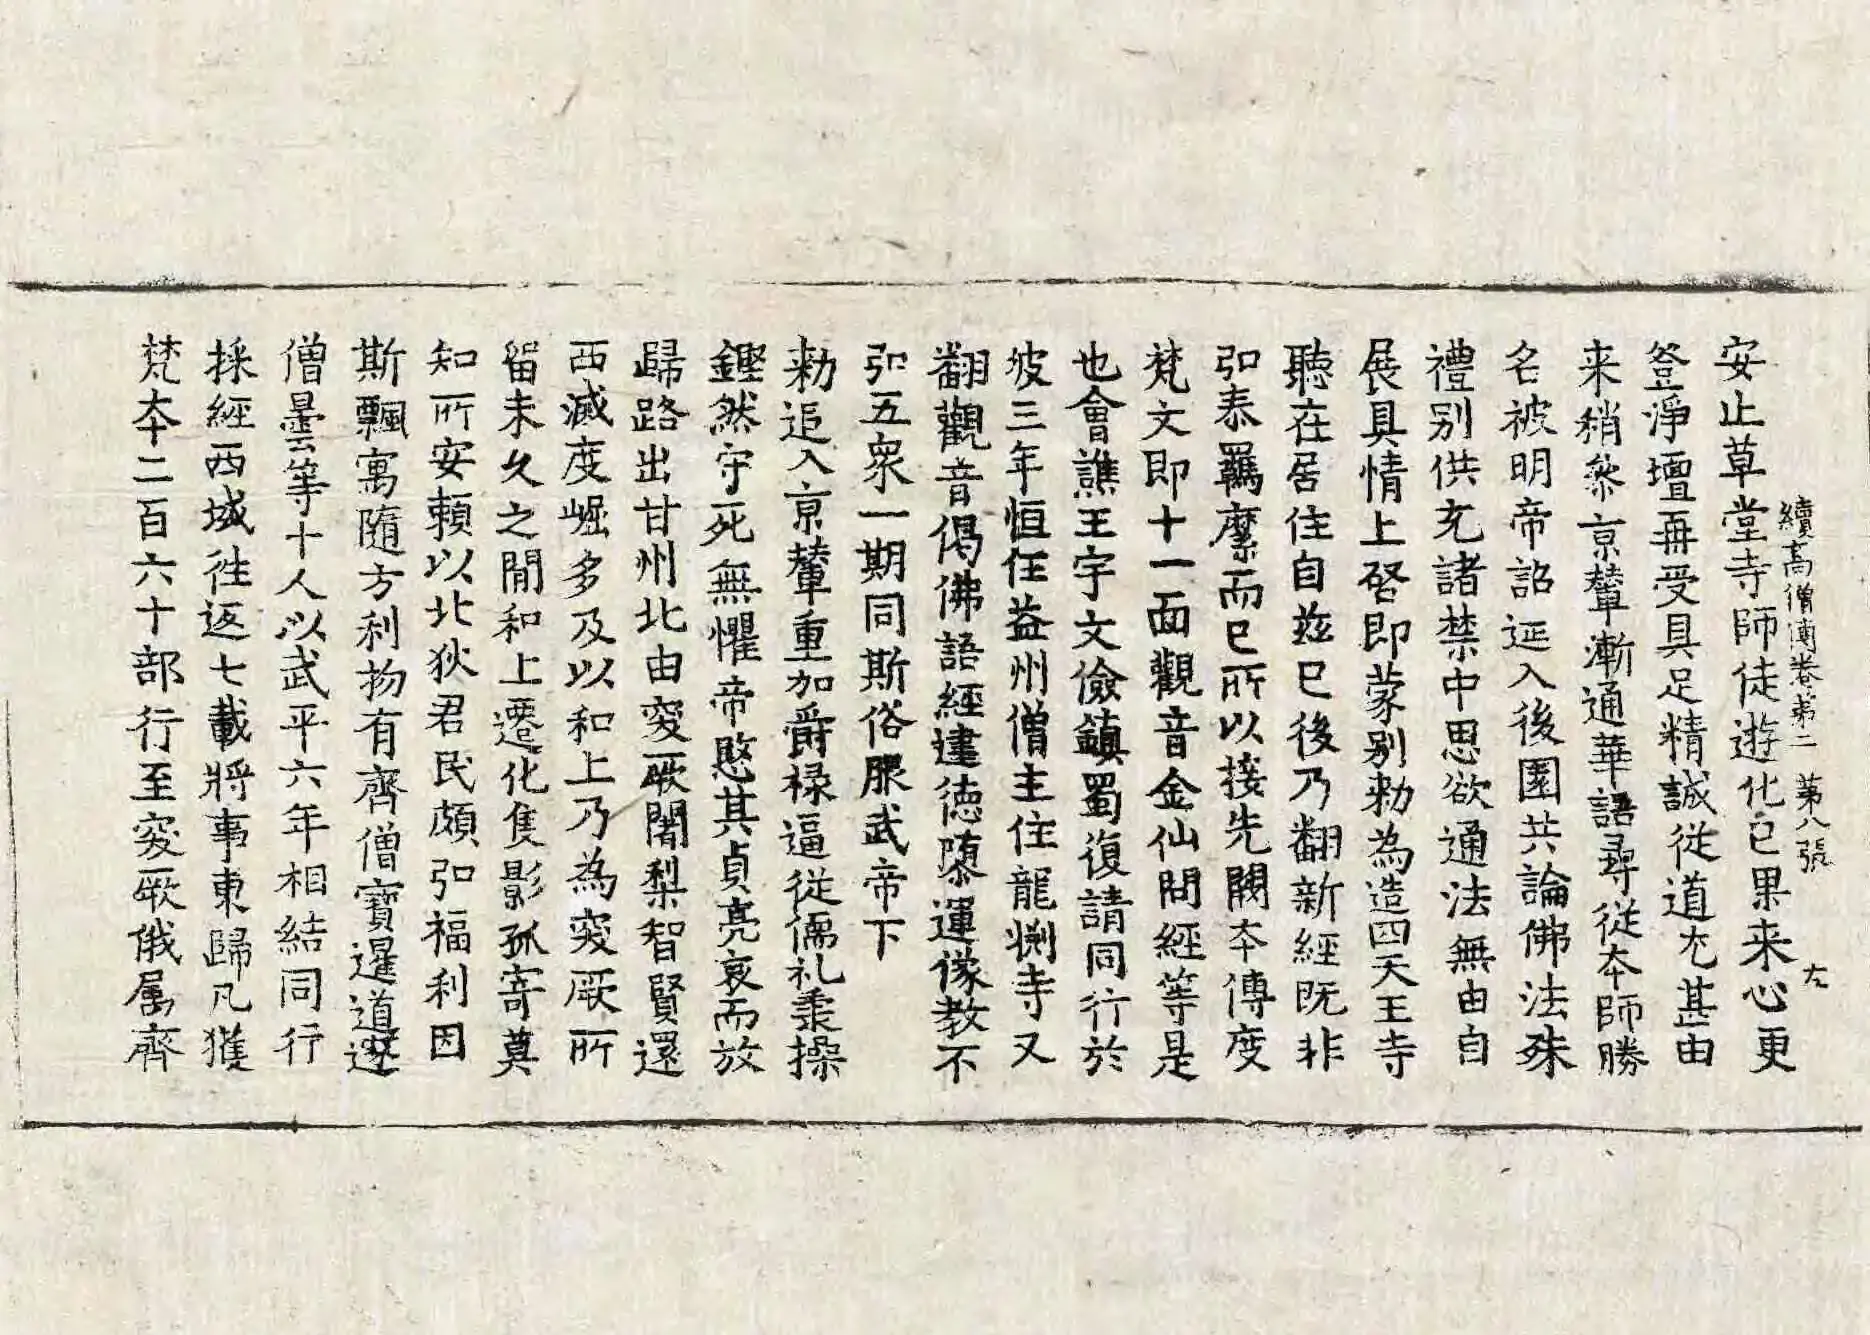 續高僧傳卷第二　第八張　左
安止草堂寺師徒遊化已果来心更
登淨壇再受具足精誠從道尤甚由
来稍叅京輦漸通華語尋從夲師勝
名被明帝詔延入後園共論佛法殊
禮別供充諸禁中思欲通法無由自
展具情上啓即蒙别勑為造四天王寺
聽在居住自茲已後乃翻新經既非
弘泰羈縻而已所以接先闕夲傳度
梵文即十一面觀音金仙問經等是
也會譙王宇文儉鎮蜀復請同行於
彼三年恒任益州僧主住龍渊寺又
翻觀音偈佛語經建德隳運像教不
弘五衆一期同斯俗服武帝下
勑追入京輦重加爵禄逼從儒礼秉操
鏗然守死無懼帝愍其貞亮哀而放
歸路出甘州北由突厥闍梨智賢還
西滅度崛多及以和上乃為突厥所
留未久之間和上遷化隻影孤寄莫
知所安頼以北狄君民頗弘福利因
斯飄寓隨方利物有齊僧寶暹道邃
僧曇等十人以武平六年相結同行
採經西域往返七載將事東歸凡獲
梵夲二百六十部行至突厥俄属齊